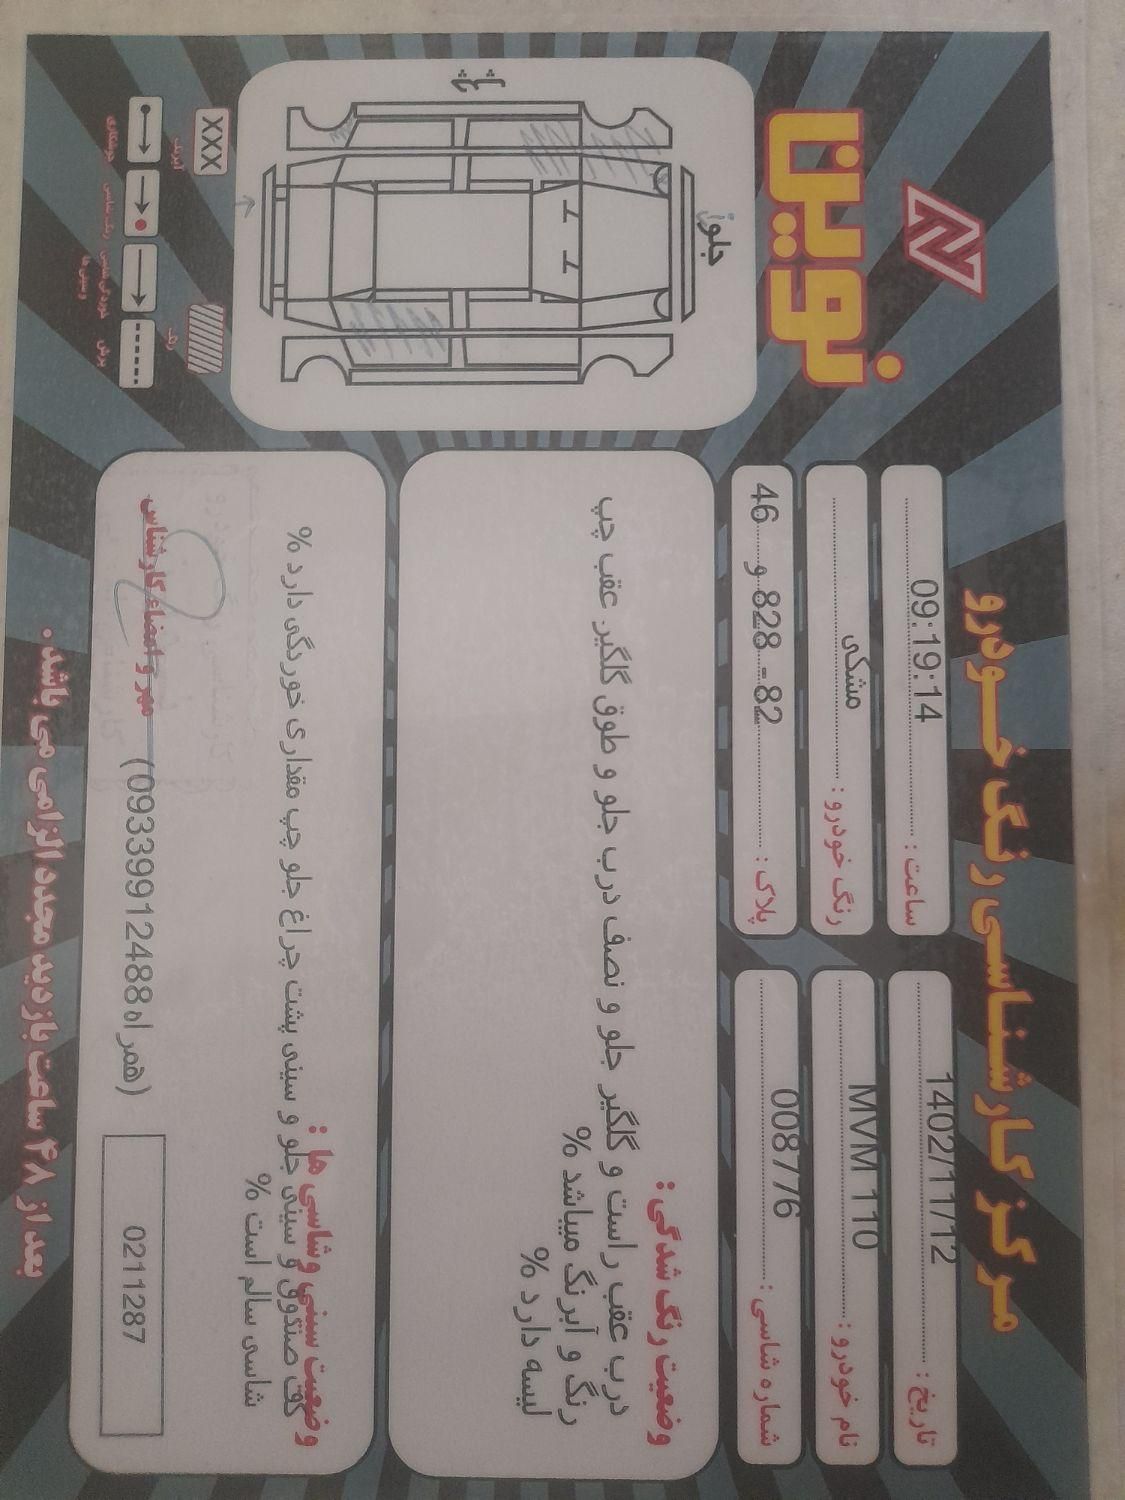 نوین
مرکز کارشناسی رنگ خودرو
تاریخ : 1402/11/12
ساعت : 09:19:14
نام خودرو : MVM 110
رنگ خودرو : مشکی
شماره شاسی : 008776
پلاک : 82 - 828 و 46
جلو
XXX
آبرنگ
رنگ
جوشکاری
وضعیت رنگ شدگی :
درب عقب راست و گلگیر جلو و نصف درب جلو و طوق گلگیر عقب چپ
رنگ و آبرنگ میباشد %
لیسه دارد %
وضعیت سنی و شاسی ها :
کف صندوق و سینی جلو و سینی پشت چراغ جلو چپ مقداری خوردگی دارد %
شاسی سالم است %
0211287
(همراه 09339912488)
مهر و امضاء کارشناس
بعد از ۴۸ ساعت بازدید مجدد الزامی می باشد .